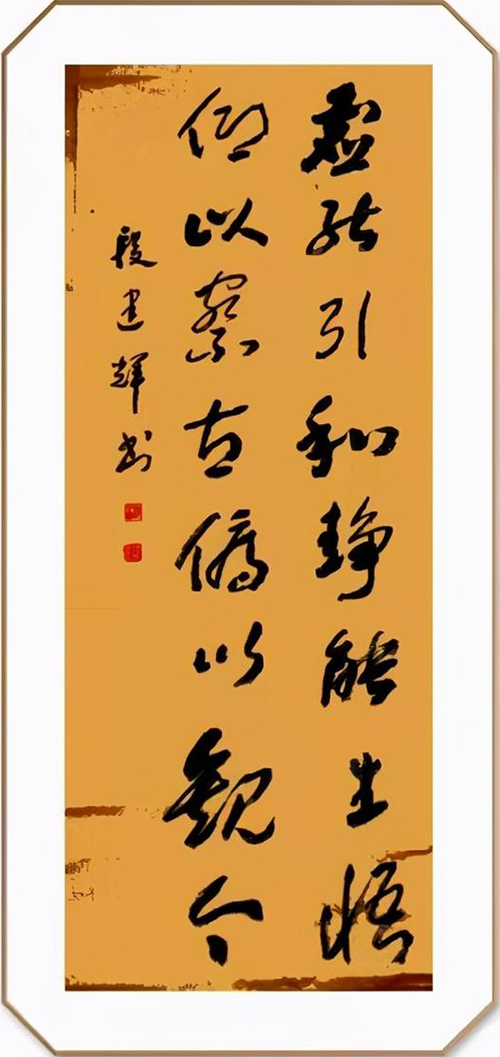 虚能引和静能生悟
仰以察古俯以觀今
段建輝书